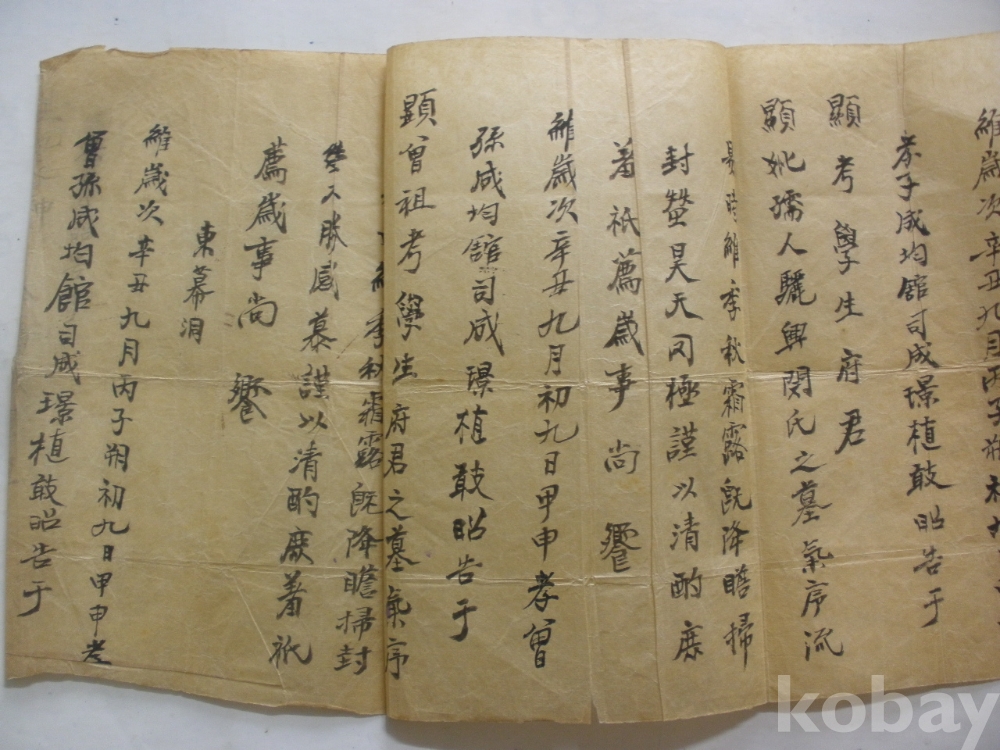 維歲次辛丑九月丙子朔
孝子成均館司成璟植敢昭告于
顯考學生府君
顯妣孺人驪興閔氏之墓氣序流
易時維季秋霜露旣降瞻掃
封塋昊天罔極謹以清酌庶
羞祗薦歲事尚饗
維歲次辛丑九月初九日甲申孝曾
孫成均館司成璟植敢昭告于
顯曾祖考學生府君之墓氣序
維季秋霜露旣降瞻掃封
塋不勝感慕謹以清酌庶羞祗
薦歲事尚饗
東幕洞
維歲次辛丑九月丙子朔初九日甲申孝
曾孫成均館司成璟植敢昭告于
kobay